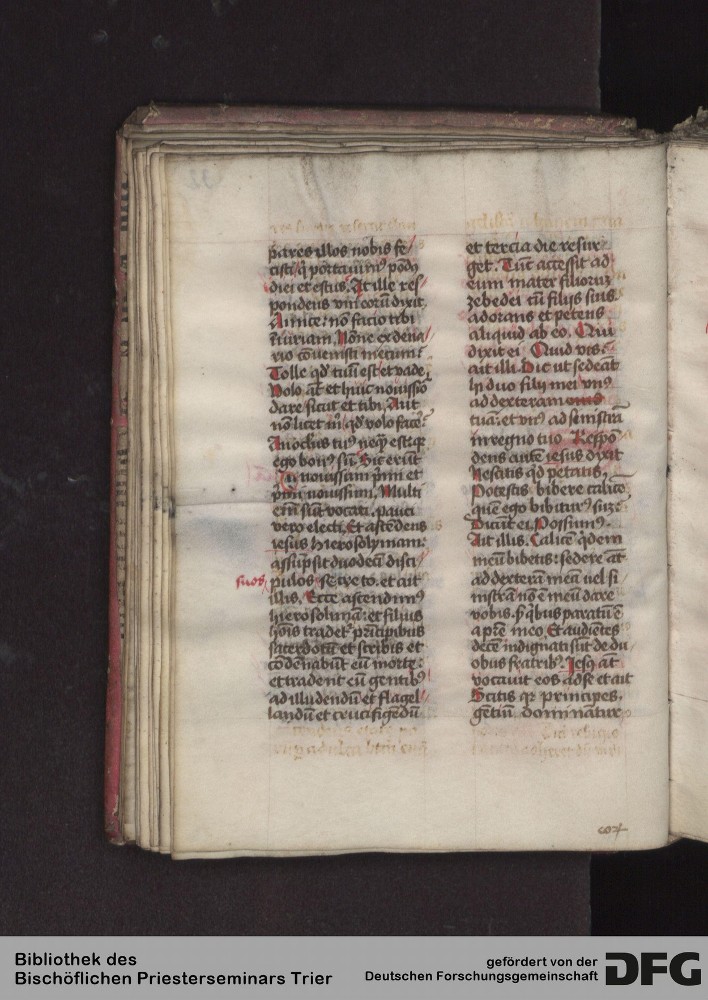 pares illos nobis fe/
cisti q̇ portauim⁹ pond⁹
diei et estus. At ille res/
pondens vni eorū dixit
Amice: nō facio tibi
iniuriam. Nōne ex dena/
rio cōuenisti mecum?
Tolle qd̄ tuū est et vade
Volo āt et huic nouissīo
dare sicut et tibi. Aut
nō licet m̄ qd̄ volo face͛?
An oculus tu⁹ neqȝ est: qȝ
ego bon⁹ sū? Sic erūt
nouissimi p̄mi et
p̄mi nouissimi. Multi
eni sūt vocati. pauci
vero electi. Et ascēdens
iesus hierosolymam:
assūpsit duodecī disci/
suos pulos secreto. et ait
illis. Ecce ascendim⁹
hierosolimā: et filius
hoīs tradet͛ prīcipibus
sacerdotū et scribis et
cōdēnabūt eū morte:
et tradent eū gentib⁹
ad illudendū et flagel/
landū et crucifigēdū
et tercia die resur/
get. Tūc accessit ad
eum mater filioruȝ
zebedei cū filijs suis.
adorans et petens
aliquid ab eo. Qui
dixit ei. Quid vis?
ait illi. Dic ut sedeāt
hi duo filij mei vn⁹
ad dexteram
tuā: et vn⁹ ad sinistrā
in regno tuo. Respō/
dens autē iesus dixit
Nescitis qd̄ petatis.
Potestis bibere calicē
quē ego bibitur⁹ suȝ?
Dicūt ei. Possum⁹.
Ait illis. Calicē q̇dem
meū bibetis: sedere āt
ad dexterā meā vel si/
nistrā nō ē meū dare
vobis. s̄ q̇bus paratū ē
a p̄re meo. Et audiētes
decē indignati sūt de du/
obus fratrib⁹. Jesus āt
vocauit eos ad se et ait
Scitis qȝ principes
gētiū dominātur
Bibliothek des
Bischöflichen Priesterseminars Trier
gefördert von der
Deutschen Forschungsgemeinschaft
DFG